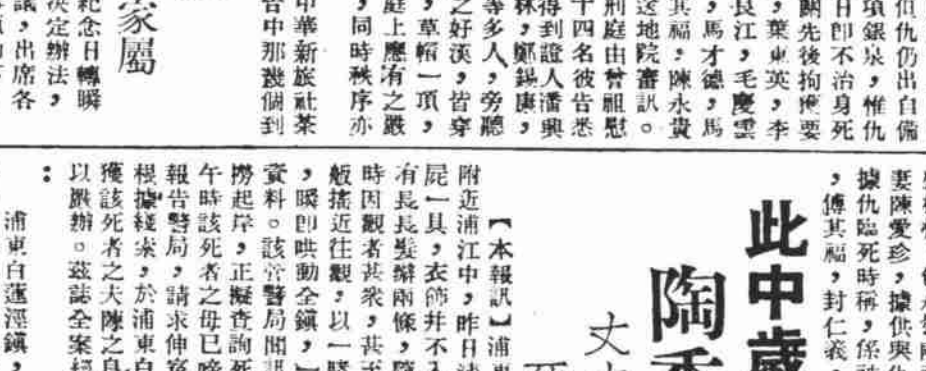 但仇仍出自備
項銀泉，惟仇
日即不治身死
關先後拘獲要
，葉東英，李
良江，毛慶雲
，馬才德，馬
其福，陳永貴
送地院審訊。
刑庭由曾祖慰
十四名彼告悉
得到證人潘興
林，鄭錫康，
等多人，旁聽
之好漢，皆穿
，草帽一頂，
庭上應有之嚴
，同時秩序亦
中華新旅社茶
當中那幾個到
家屬
紀念日轉瞬
決定辦法，
議，出席各
妻陳愛珍，據供與仇
據仇臨死時稱，係被
，傅其福，封仁義，
此中歲
陶香
丈
【本報訊】浦東
附近浦江中，昨日
屍一具，衣飾并不
有長長髮辮兩條，
時因觀者甚衆，甚至
般搖近往觀，以一睹
，瞬即哄動全鎮，
資料。該管警局聞訊
撈起岸，正擬查詢死
午時該死者之母已
報告警局，請求伸寃
根據綫索，於浦東白
獲該死者之夫陳之良
以嚴辦。茲誌全案經
：
浦東白蓮涇鎮，